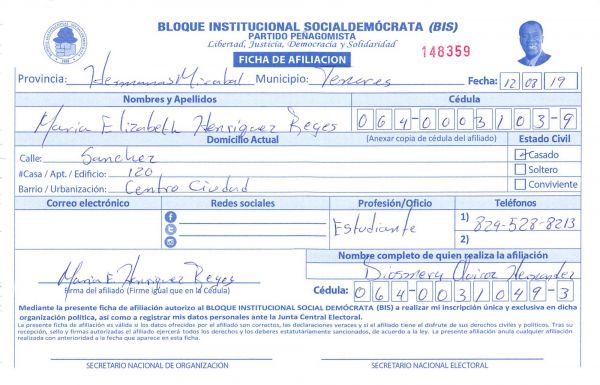 BLOQUE INSTITUCIONAL SOCIALDEMÓCRATA (BIS)
PARTIDO PEÑAGOMISTA
Libertad, Justicia, Democracia y Solidaridad
FICHA DE AFILIACION
148359
Provincia: Hermanas Mirabal Municipio: Tenares Fecha: 12 08 19
Nombres y Apellidos
Cédula
Maria Elizabeth Henriquez Reyes
064-0003103-9
Domicilio Actual
(Anexar copia de cédula del afiliado)
Estado Civil
Calle: Sanchez
Casado
#Casa / Apt. / Edificio: 120
Soltero
Barrio / Urbanización: Centro Ciudad
Conviviente
Correo electrónico
Redes sociales
Profesión/Oficio
Teléfonos
Estudiante
1) 829-528-8213
2)
Nombre completo de quien realiza la afiliación
Maria E. Henriquez Reyes
Hernandez
Firma del afiliado (Firme igual que en la Cédula)
Cédula: 064-0031049-3
Mediante la presente ficha de afiliación autorizo al BLOQUE INSTITUCIONAL SOCIAL DEMÓCRATA (BIS) a realizar mi inscripción única y exclusiva en dicha
organización política, así como a registrar mis datos personales ante la Junta Central Electoral.
La presente ficha de afiliación es válida si los datos ofrecidos por el afiliado son correctos, las declaraciones veraces y si el afiliado tiene el disfrute de sus derechos civiles y políticos. Tras su
recepción, sello y firmas autorizadas el afiliado ejercerá todos los derechos y los deberes estatutariamente sancionados, de acuerdo a la ley. La presente afiliación anula cualquier afiliación
realizada con anterioridad a la fecha que aparece en esta ficha.
SECRETARIO NACIONAL DE ORGANIZACIÓN
SECRETARIO NACIONAL ELECTORAL